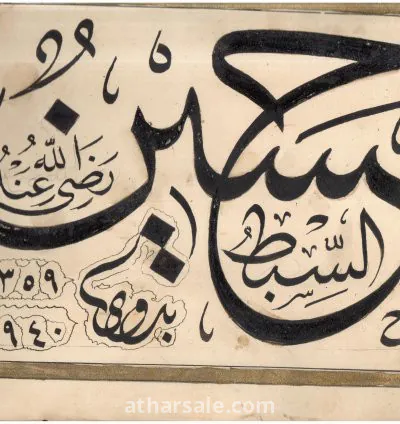 حسين
السِّبط
رَضِيَ اللّٰه
بدوي
٣٥٩
٩٤٠
atharsale.com